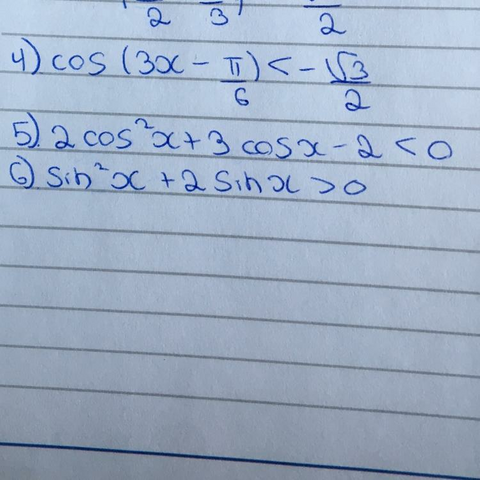 2 3 2
4) cos (3x - π/6) < - √3/2
5) 2 cos²x + 3 cosx - 2 < 0
6) sin²x + 2 sinx > 0